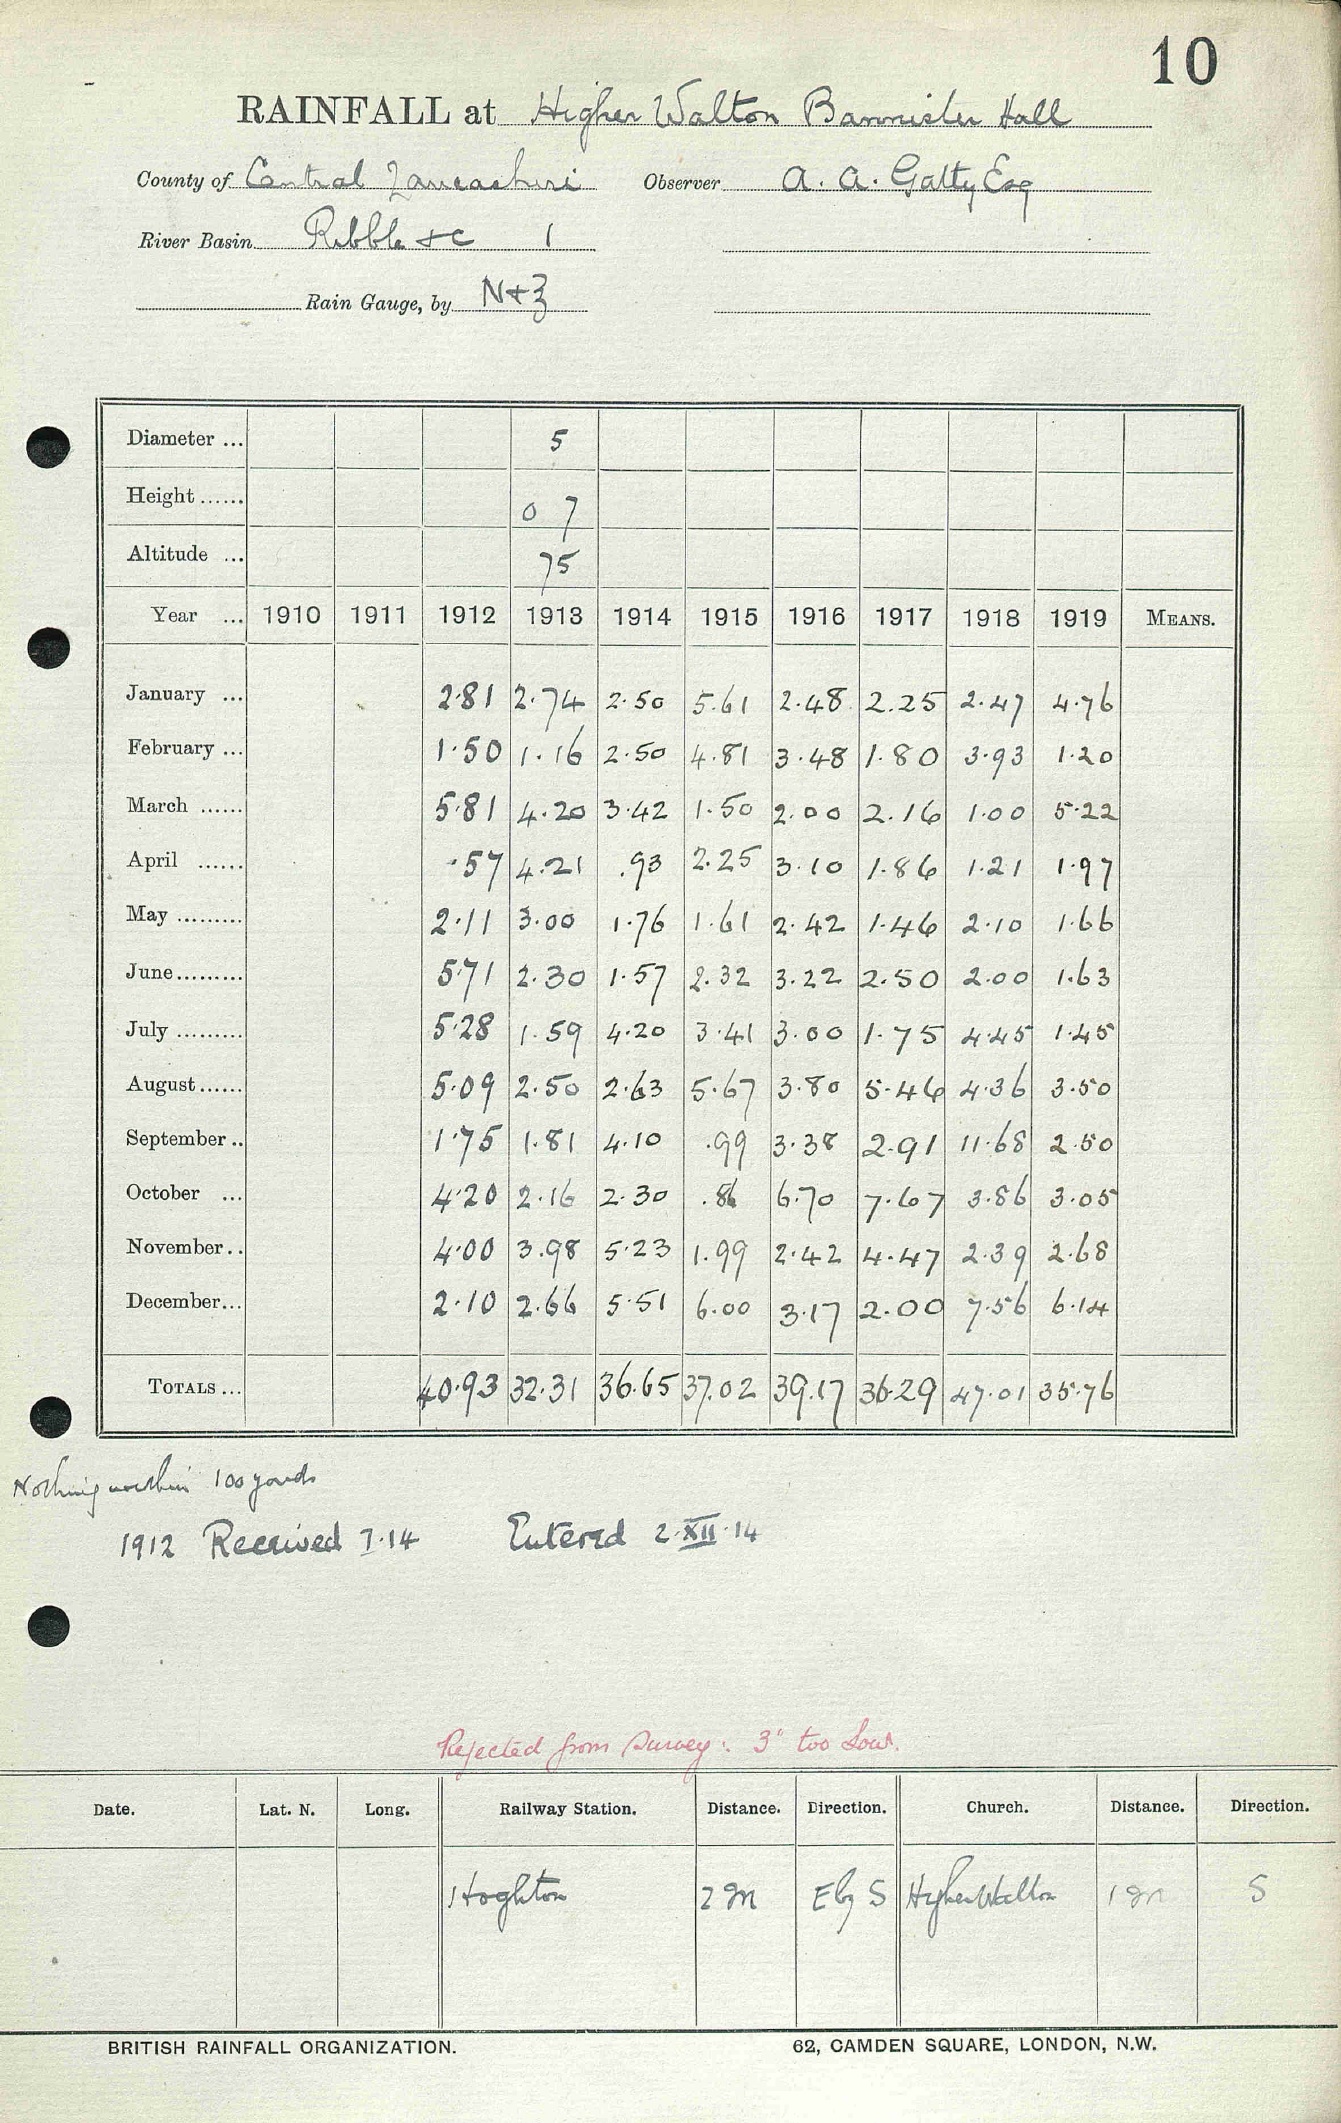 10
RAINFALL at Higher Walton Bannister Hall
County of Central Lancashire Observer A. A. Gatty Esq
River Basin Ribble &c 1
Rain Gauge, by N+Z
Diameter ... 5
Height ...... 0 7
Altitude ... 75
Year ... 1910 1911 1912 1913 1914 1915 1916 1917 1918 1919 MEANS.
January ... 2.81 2.74 2.50 5.61 2.48 2.25 2.47 4.76
February ... 1.50 1.16 2.50 4.81 3.48 1.80 3.93 1.20
March ...... 5.81 4.20 3.42 1.50 2.00 2.16 1.00 5.22
April ...... .57 4.21 .93 2.25 3.10 1.86 1.21 1.97
May ......... 2.11 3.00 1.76 1.61 2.42 1.46 2.10 1.66
June ......... 5.71 2.30 1.57 2.32 3.22 2.50 2.00 1.63
July ......... 5.28 1.59 4.20 3.41 3.00 1.75 4.45 1.45
August ...... 5.09 2.50 2.63 5.67 3.80 5.46 4.36 3.50
September .. 1.75 1.81 4.10 .99 3.38 2.91 11.68 2.50
October ... 4.20 2.16 2.30 .86 6.70 7.67 3.86 3.05
November .. 4.00 3.98 5.23 1.99 2.42 4.47 2.39 2.68
December ... 2.10 2.66 5.51 6.00 3.17 2.00 7.56 6.14
TOTALS ... 40.93 32.31 36.65 37.02 39.17 36.29 47.01 35.76
Nothing within 100 yards
1912 Received I.14 Entered 2.XII.14
Rejected from Survey: 3" too low.
Date. Lat. N. Long. Railway Station. Distance. Direction. Church. Distance. Direction.
Hoghton 2m E by S Higher Walton 1m S
BRITISH RAINFALL ORGANIZATION. 62, CAMDEN SQUARE, LONDON, N.W.